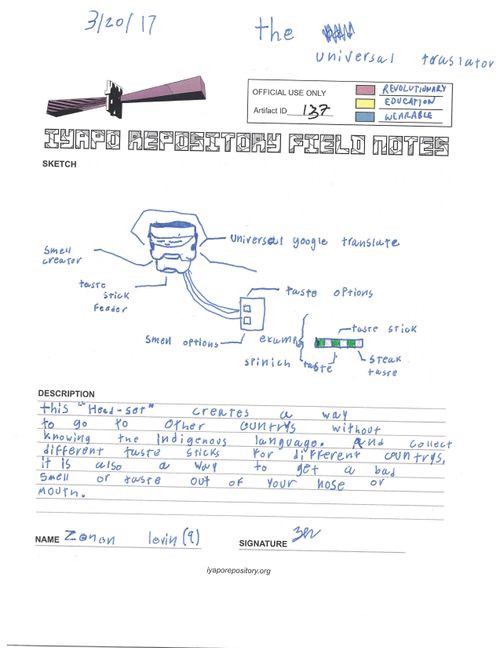 3/20/17
the
universal traslator
OFFICIAL USE ONLY
Artifact ID 137
REVOLUTIONARY
EDUCATION
WEARABLE
IYAPO REPOSITORY FIELD NOTES
SKETCH
universal google translate
Smell
creator
taste
stick
feader
taste options
Smell options
exump
taste stick
spinich taste
Steak
taste
DESCRIPTION
this "Head-set" creates a way
to go to other countrys without
knowing the indigenous language. And collect
different taste sticks for different countrys,
it is also a way to get a bad
smell or taste out of your nose or
mouth.
NAME Zenon levin (9)
SIGNATURE
iyaporepository.org